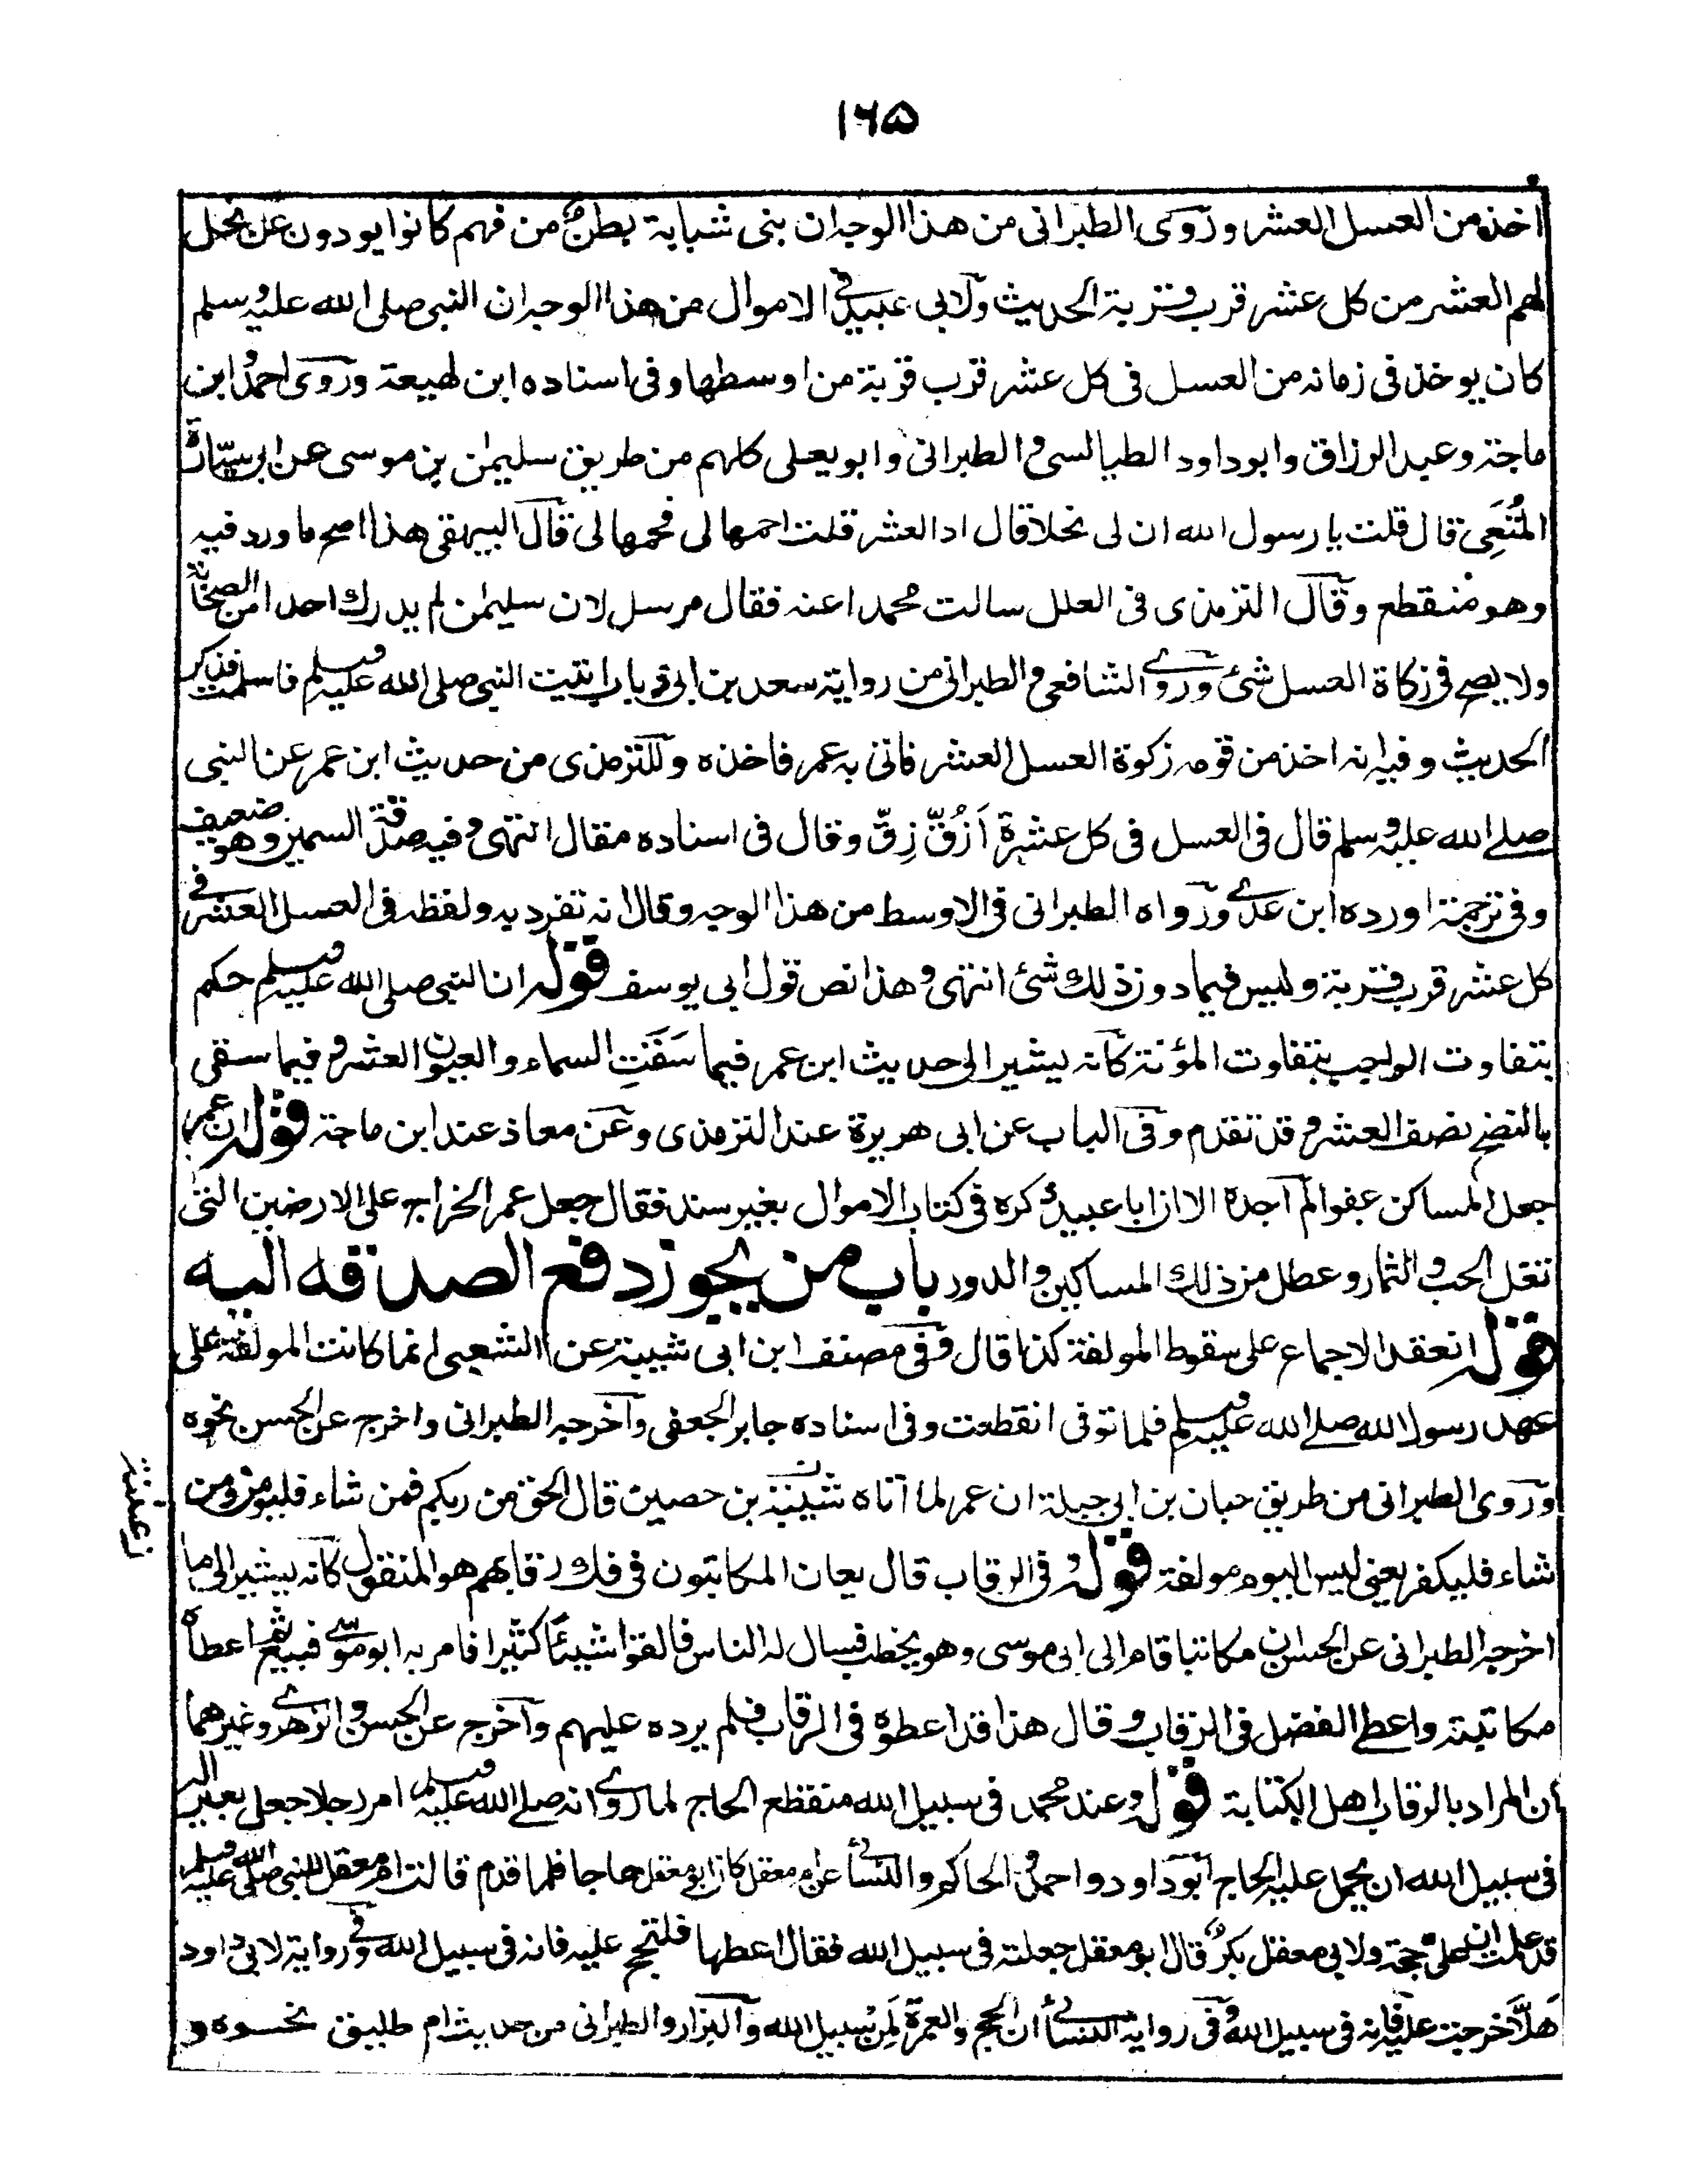 ١٦٥
اخذ من العسل العشر وروى الطبرانى من هذا الوجه ان بنى شبابة بطن من فهم كانوا يودون عن نحل
لهم العشر من كل عشر قرب قربة الحديث ولابى عبيد فى الاموال من هذا الوجه ان النبى صلى الله عليه وسلم
كان يوخذ فى زمانه من العسل فى كل عشر قرب قربة من اوسطها وفى اسناده ابن لهيعة وروى احمد وابن
ماجة وعبد الرزاق وابو داود الطيالسى والطبرانى وابو يعلى كلهم من طريق سليمٰن بن موسى عن ابى سيّارة
المُتَعِى قال قلت يا رسول الله ان لى نحلا قال اد العشر قلت احمها لى فحمها لى قال البيهقى هذا اصح ما ورد فيه
وهو منقطع وقال الترمذى فى العلل سالت محمدا عنه فقال مرسل لان سليمٰن لم يدرك احدا من الصحابة
ولا يصح فى زكاة العسل شئ وروى الشافعى والطبرانى من رواية سعد بن ابى ذباب اتيت النبى صلى الله عليه وسلم فاسلمت فذكر
الحديث وفيه انه اخذ من قومه زكوة العسل العشر فاتى به عمر فاخذه وللترمذى من حديث ابن عمر عن النبى
صلے الله عليه وسلم قال فى العسل فى كل عشرة اَزُقّ زِقّ وقال فى اسناده مقال انتهى وفيه صدقة السمين وهو ضعيف
وفى ترجمته اورده ابن عدے ورواه الطبرانى فى الاوسط من هذا الوجه وقال انه تفرد به ولفظه فى العسل العشر فى
كل عشر قرب قربة وليس فيما دون ذلك شئ انتهى وهذا نص قول ابى يوسف قوله ان النبى صلى الله عليه وسلم حكم
بتفاوت الواجب بتفاوت المؤنة كانه يشير الى حديث ابن عمر فيما سَقَتِ السماء والعيون العشر وفيما سقى
بالنضح نصف العشر وقد تقدم وفى الباب عن ابى هريرة عند الترمذى وعن معاذ عند ابن ماجة قوله ان عمر
جعل المساكن عفوا لم اجدة الا ان ابا عبيد ذكره فى كتاب الاموال بغير سند فقال جعل عمر الخراج على الارضين التى
تغل الحب والثمار وعطل من ذلك المساكين والدور باب من يجوز دفع الصدقه اليه
قوله انعقد الاجماع على سقوط المولفة كذا قال وفى مصنف ابن ابى شيبة عن الشعبى انما كانت المولفة على
عهد رسول الله صلے الله عليه وسلم فلما توفى انقطعت وفى اسناده جابر الجعفى واخرجه الطبرانى واخرج عن الحسن نحوه
وروى الطبرانى من طريق حبان بن ابى جبلة ان عمر لما اتاه شيينة بن حصين قال الحق من ربكم فمن شاء فليومن ومن
ن عيينة
شاء فليكفر يعنى ليس اليوم مولفة قوله فى الرقاب قال يعان المكاتبون فى فك رقابهم هو المنقول كانه يشير الى ما
اخرجه الطبرانى عن الحسن ان مكاتبا قام الى ابى موسى وهو يخطب فسال له الناس فالقوا شيئا كثيرا فامر به ابو موسى فبيع ثم اعطاه
مكاتبته واعطى الفضل فى الرقاب وقال هذا قد اعطوه فى الرقاب فلم يرده عليهم واخرج عن الحسن والزهرے وغيرهما
ان المراد بالرقاب اهل الكتابة قوله وعند محمد فى سبيل الله منقطع الحاج لما روى انه صلے الله عليه وسلم امر رجلا جعل بعيرا له
فى سبيل الله ان يحمل عليه الحاج ابو داود واحمد والحاكم والنسائى عن ام معقل كان ابو معقل حاجا فلما قدم قالت ام معقل للنبى صلى الله عليه وسلم
قد علمت ان علىّ حجة ولابى معقل بكرًا قال ابو معقل جعلته فى سبيل الله فقال اعطها فلتحج عليه فانه فى سبيل الله وفى رواية لابى داود
هَلَّا خرجت عليه فانه فى سبيل الله وفى رواية النسائى ان الحج والعمرة لَمِن سبيل الله والبزار والطبرانى من حديث ام طليق نحوه و